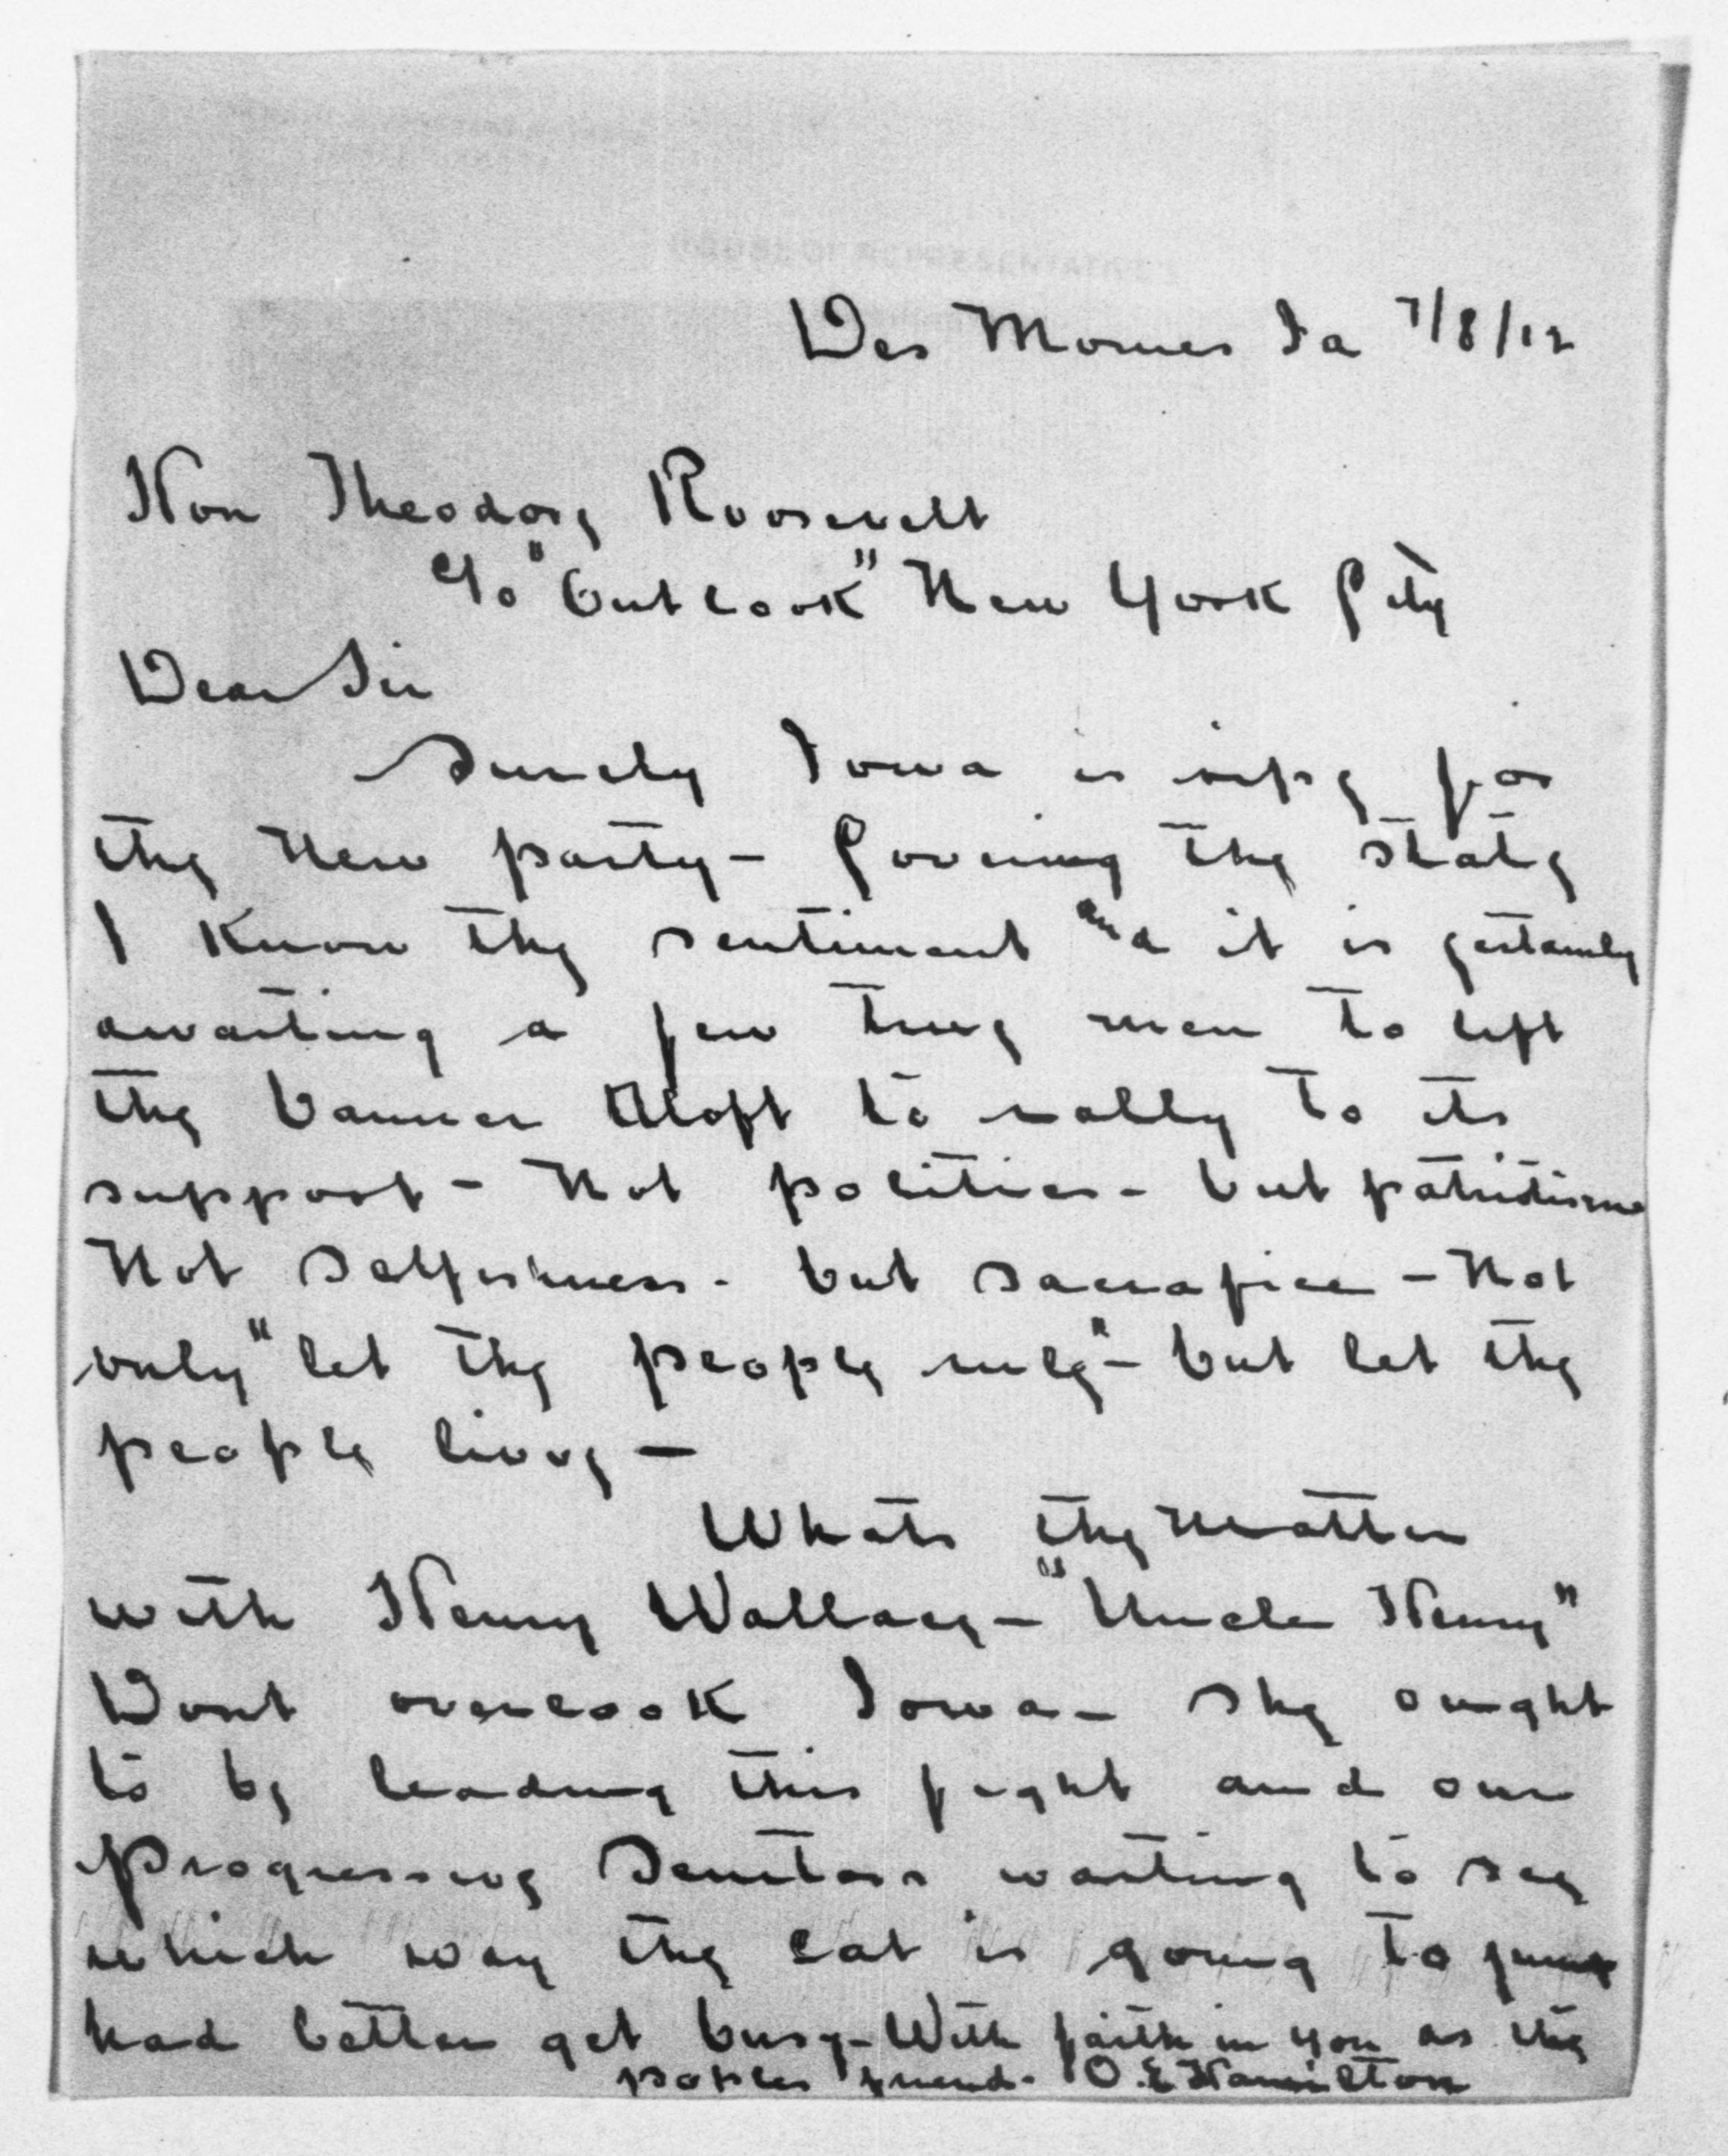 Des Moines Ia 7/8/12
Hon Theodore Roosevelt
c/o "Outlook" New York City
Dear Sir
Surely Iowa is ripe for
the New party - Covering the state
I Know the sentiment and it is certainly
awaiting a few true men to lift
the banner Aloft to rally to its
support - Not politics - but patriotism
Not Selfishness - but sacrafice - Not
only "let the people rule" - but let the
people live -
Whats the Matter
with Henry Wallace - "Uncle Henry"
Dont overlook Iowa - she ought
to be leading this fight and our
Progressive Senitors waiting to see
which way the cat is going to jump
had better get busy - With faith in you as the
peoples friend - O. E. Hamilton